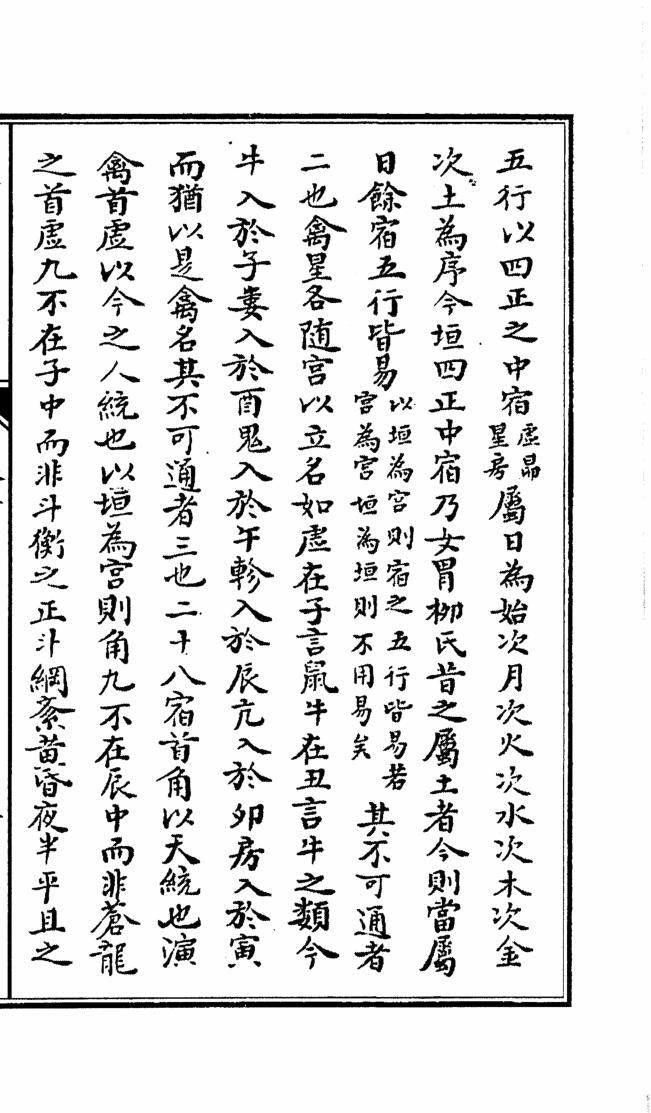 五行以四正之中宿虛昴星房屬日為始次月次火次水次木次金
次土為序今垣四正中宿乃女胃柳氐昔之屬土者今則當屬
日餘宿五行皆易以垣為宮則宿之五行皆易若宮為宮垣為垣則不用易矣其不可通者
二也禽星各随宫以立名如虛在子言鼠牛在丑言牛之類今
牛入於子婁入於酉鬼入於午軫入於辰亢入於卯房入於寅
而猶以是禽名其不可通者三也二十八宿首角以天統也演
禽首虛以今之人統也以垣為宮則角九不在辰中而非蒼龍
之首虛九不在子中而非斗衡之正斗綱紊黄昏夜半平旦之